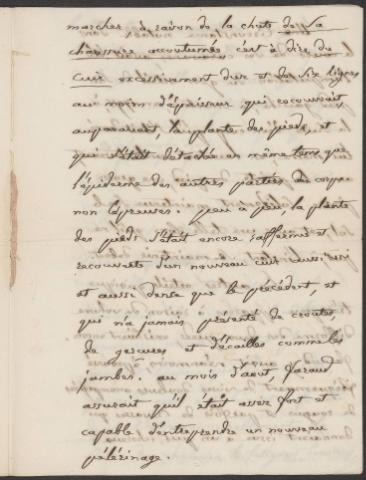 marcher à raison de la chute de la
chaussure accoutumée c'est à dire du
cuir excessivement dur et de six lignes
au moins d'épaisseur qui recouvrait
auparavant, la plante des pieds et
qui s'était détachée en même tems que
l'épiderme des autres parties du corps
non lépreuses. peu à peu, la plante
des pieds s'était encore raffermie et
recouverte d'un nouveau cuir aussi
et aussi dense que le précédent, et
qui n'a jamais présenté de croutes,
de gerçures et d'écailles comme les
jambes. au mois d'aout, faraud
assurait qu'il était assez fort et
capable d'entreprendre un nouveau
pélérinage.